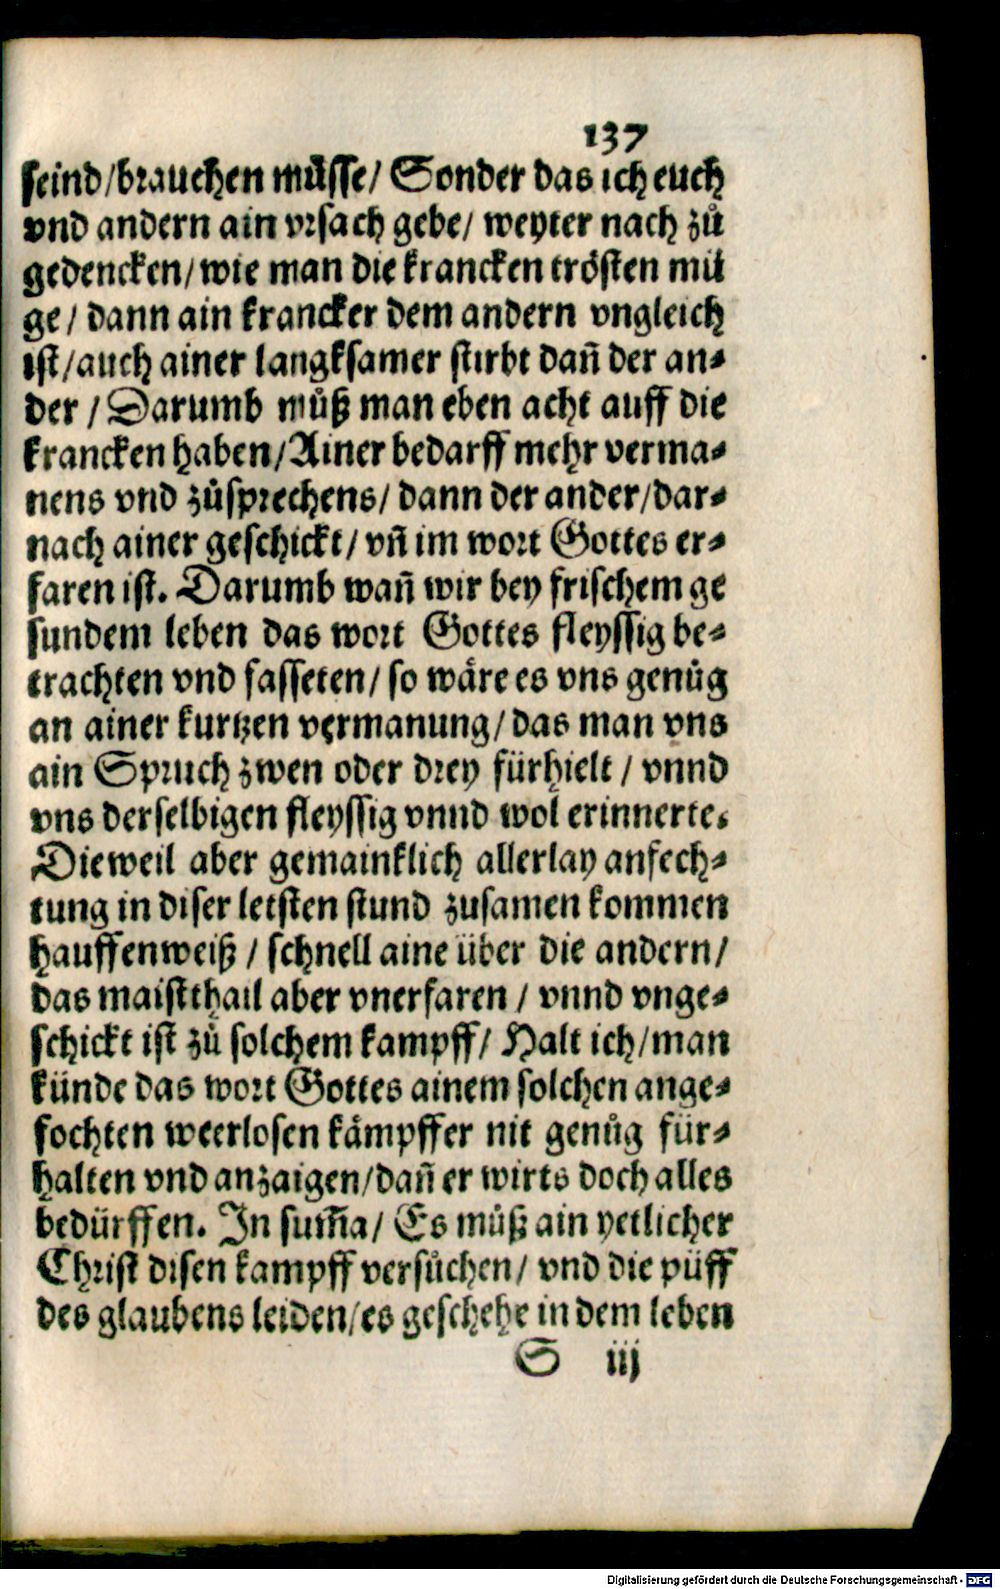 137
seind/brauchen müsse/ Sonder das ich euch
vnd andern ain vrsach gebe/ weyter nach zů
gedencken/wie man die krancken trösten mü
ge/ dann ain krancker dem andern vngleich
ist/auch ainer langksamer stirbt dañ der an⸗
der /Darumb můß man eben acht auff die
krancken haben/Ainer bedarff mehr verma⸗
nens vnd zůsprechens/ dann der ander/dar⸗
nach ainer geschickt/ vñ im wort Gottes er⸗
faren ist. Darumb wañ wir bey frischem ge
sundem leben das wort Gottes fleyssig be⸗
trachten vnd fasseten/ so wäre es vns genůg
an ainer kurtzen vermanung/das man vns
ain Spruch zwen oder drey fürhielt / vnnd
vns derselbigen fleyssig vnnd wol erinnerte.
Dieweil aber gemainklich allerlay anfech⸗
tung in diser letsten stund zusamen kommen
hauffenweiß / schnell aine über die andern/
das maistthail aber vnerfaren / vnnd vnge⸗
schickt ist zů solchem kampff/ Halt ich/man
künde das wort Gottes ainem solchen ange⸗
fochten weerlosen kämpffer nit genůg für⸗
halten vnd anzaigen/dañ er wirts doch alles
bedürffen. In sum̃a/ Es můß ain yetlicher
Christ disen kampff versůchen/ vnd die püff
des glaubens leiden/es geschehe in dem leben
S iij
Digitalisierung gefördert durch die Deutsche Forschungsgemeinschaft - DFG